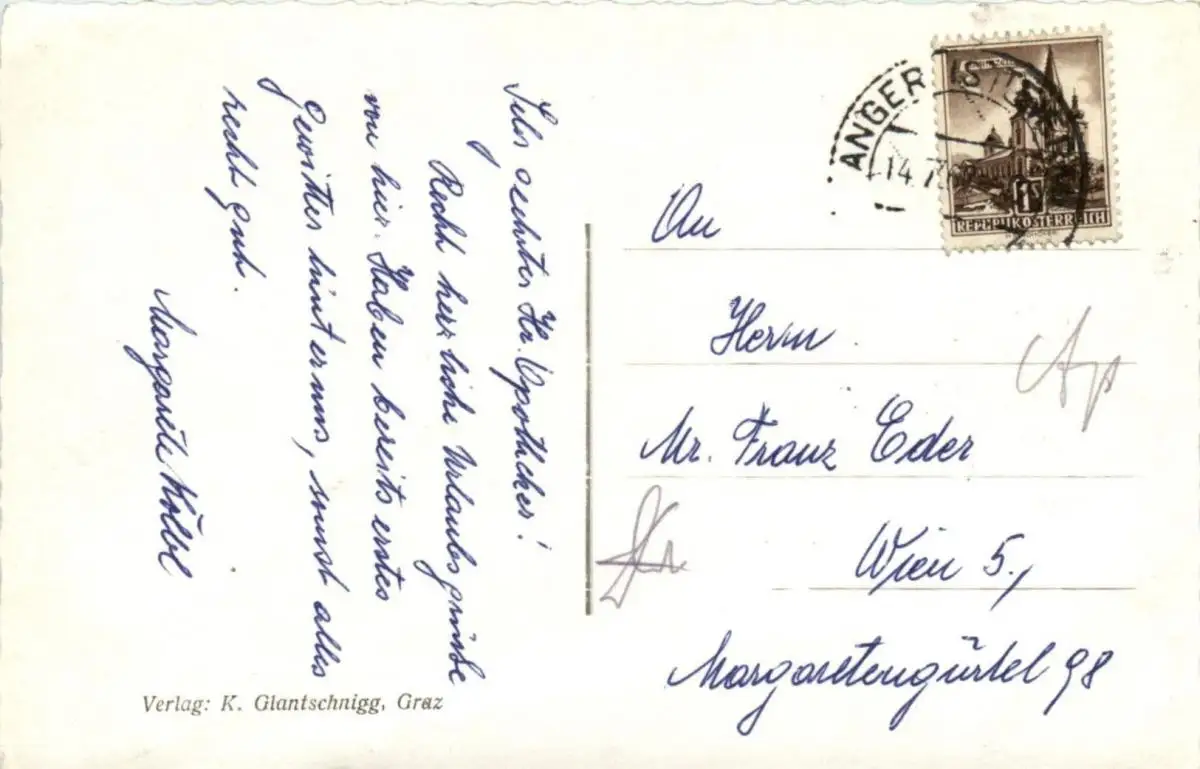 Sehr geehrter Hr. Apotheker!
Recht herzliche Urlaubsgrüße
von hier. Haben bereits erstes
Gewitter hinter uns, sonst alles
recht gut.
Margarete Kölbl
Verlag: K. Glantschnigg, Graz
ANGER
14.7.
1S
REPUBLIK ÖSTERREICH
An
Herrn
Mr. Franz Eder
Wien 5.,
Margaretengürtel 98